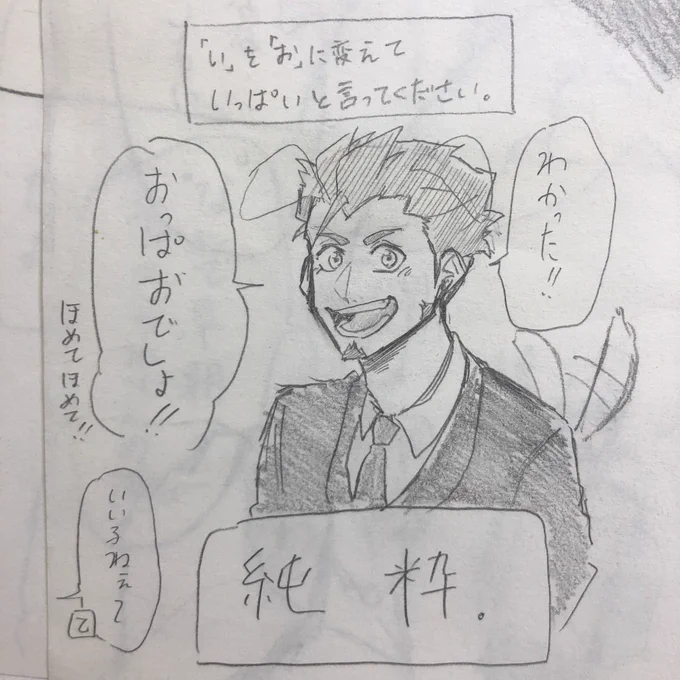 「い」を「お」に変えて
いっぱいと言ってください。
わかった!!
おっぱおでしょ!!
ほめてほめて!!
いい子ねぇて
乙
純粋。